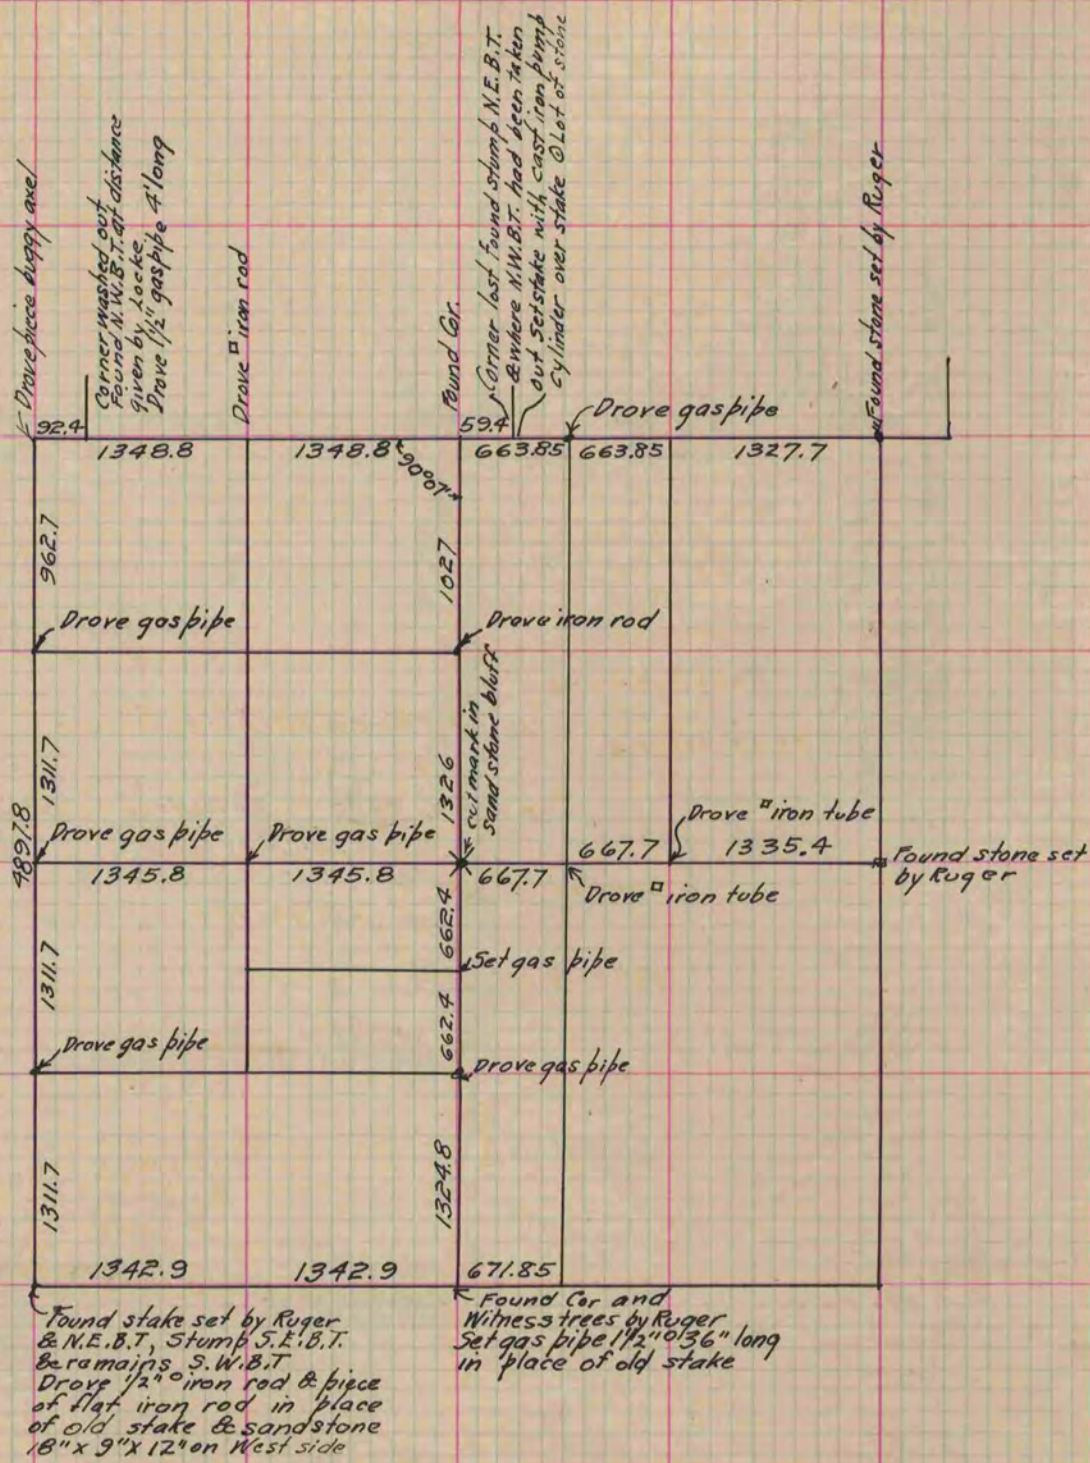 Drove piece buggy axel
Corner washed out
Found N.W.B.T. at distance
given by Locke
Drove 1 1/2" gas pipe 4' long
Drove □ iron rod
Found Cor.
Corner lost found stump N.E.B.T.
& where N.W.B.T. had been taken
out Set stake with cast iron pump
cylinder over stake & Lot of stone
Found stone set by Ruger
92.4
59.4
Drove gas pipe
1348.8
1348.8
90°07'
663.85
663.85
1327.7
962.7
1027
Drove gas pipe
Drove iron rod
cut mark in
sand stone bluff
1311.7
1326
4897.8
Drove gas pipe
Drove gas pipe
Drove □ iron tube
1345.8
1345.8
667.7
667.7
1335.4
Found stone set
by Ruger
Drove □ iron tube
662.4
Set gas pipe
1311.7
662.4
Drove gas pipe
Drove gas pipe
1311.7
1324.8
1342.9
1342.9
671.85
Found stake set by Ruger
& N.E.B.T, Stump S.E.B.T.
& remains S.W.B.T
Drove 1/2" ○ iron rod & piece
of flat iron rod in place
of old stake & sandstone
18" x 9" x 12" on West side
Found Cor and
Witness trees by Ruger
Set gas pipe 1 1/2" ○ 36" long
in place of old stake